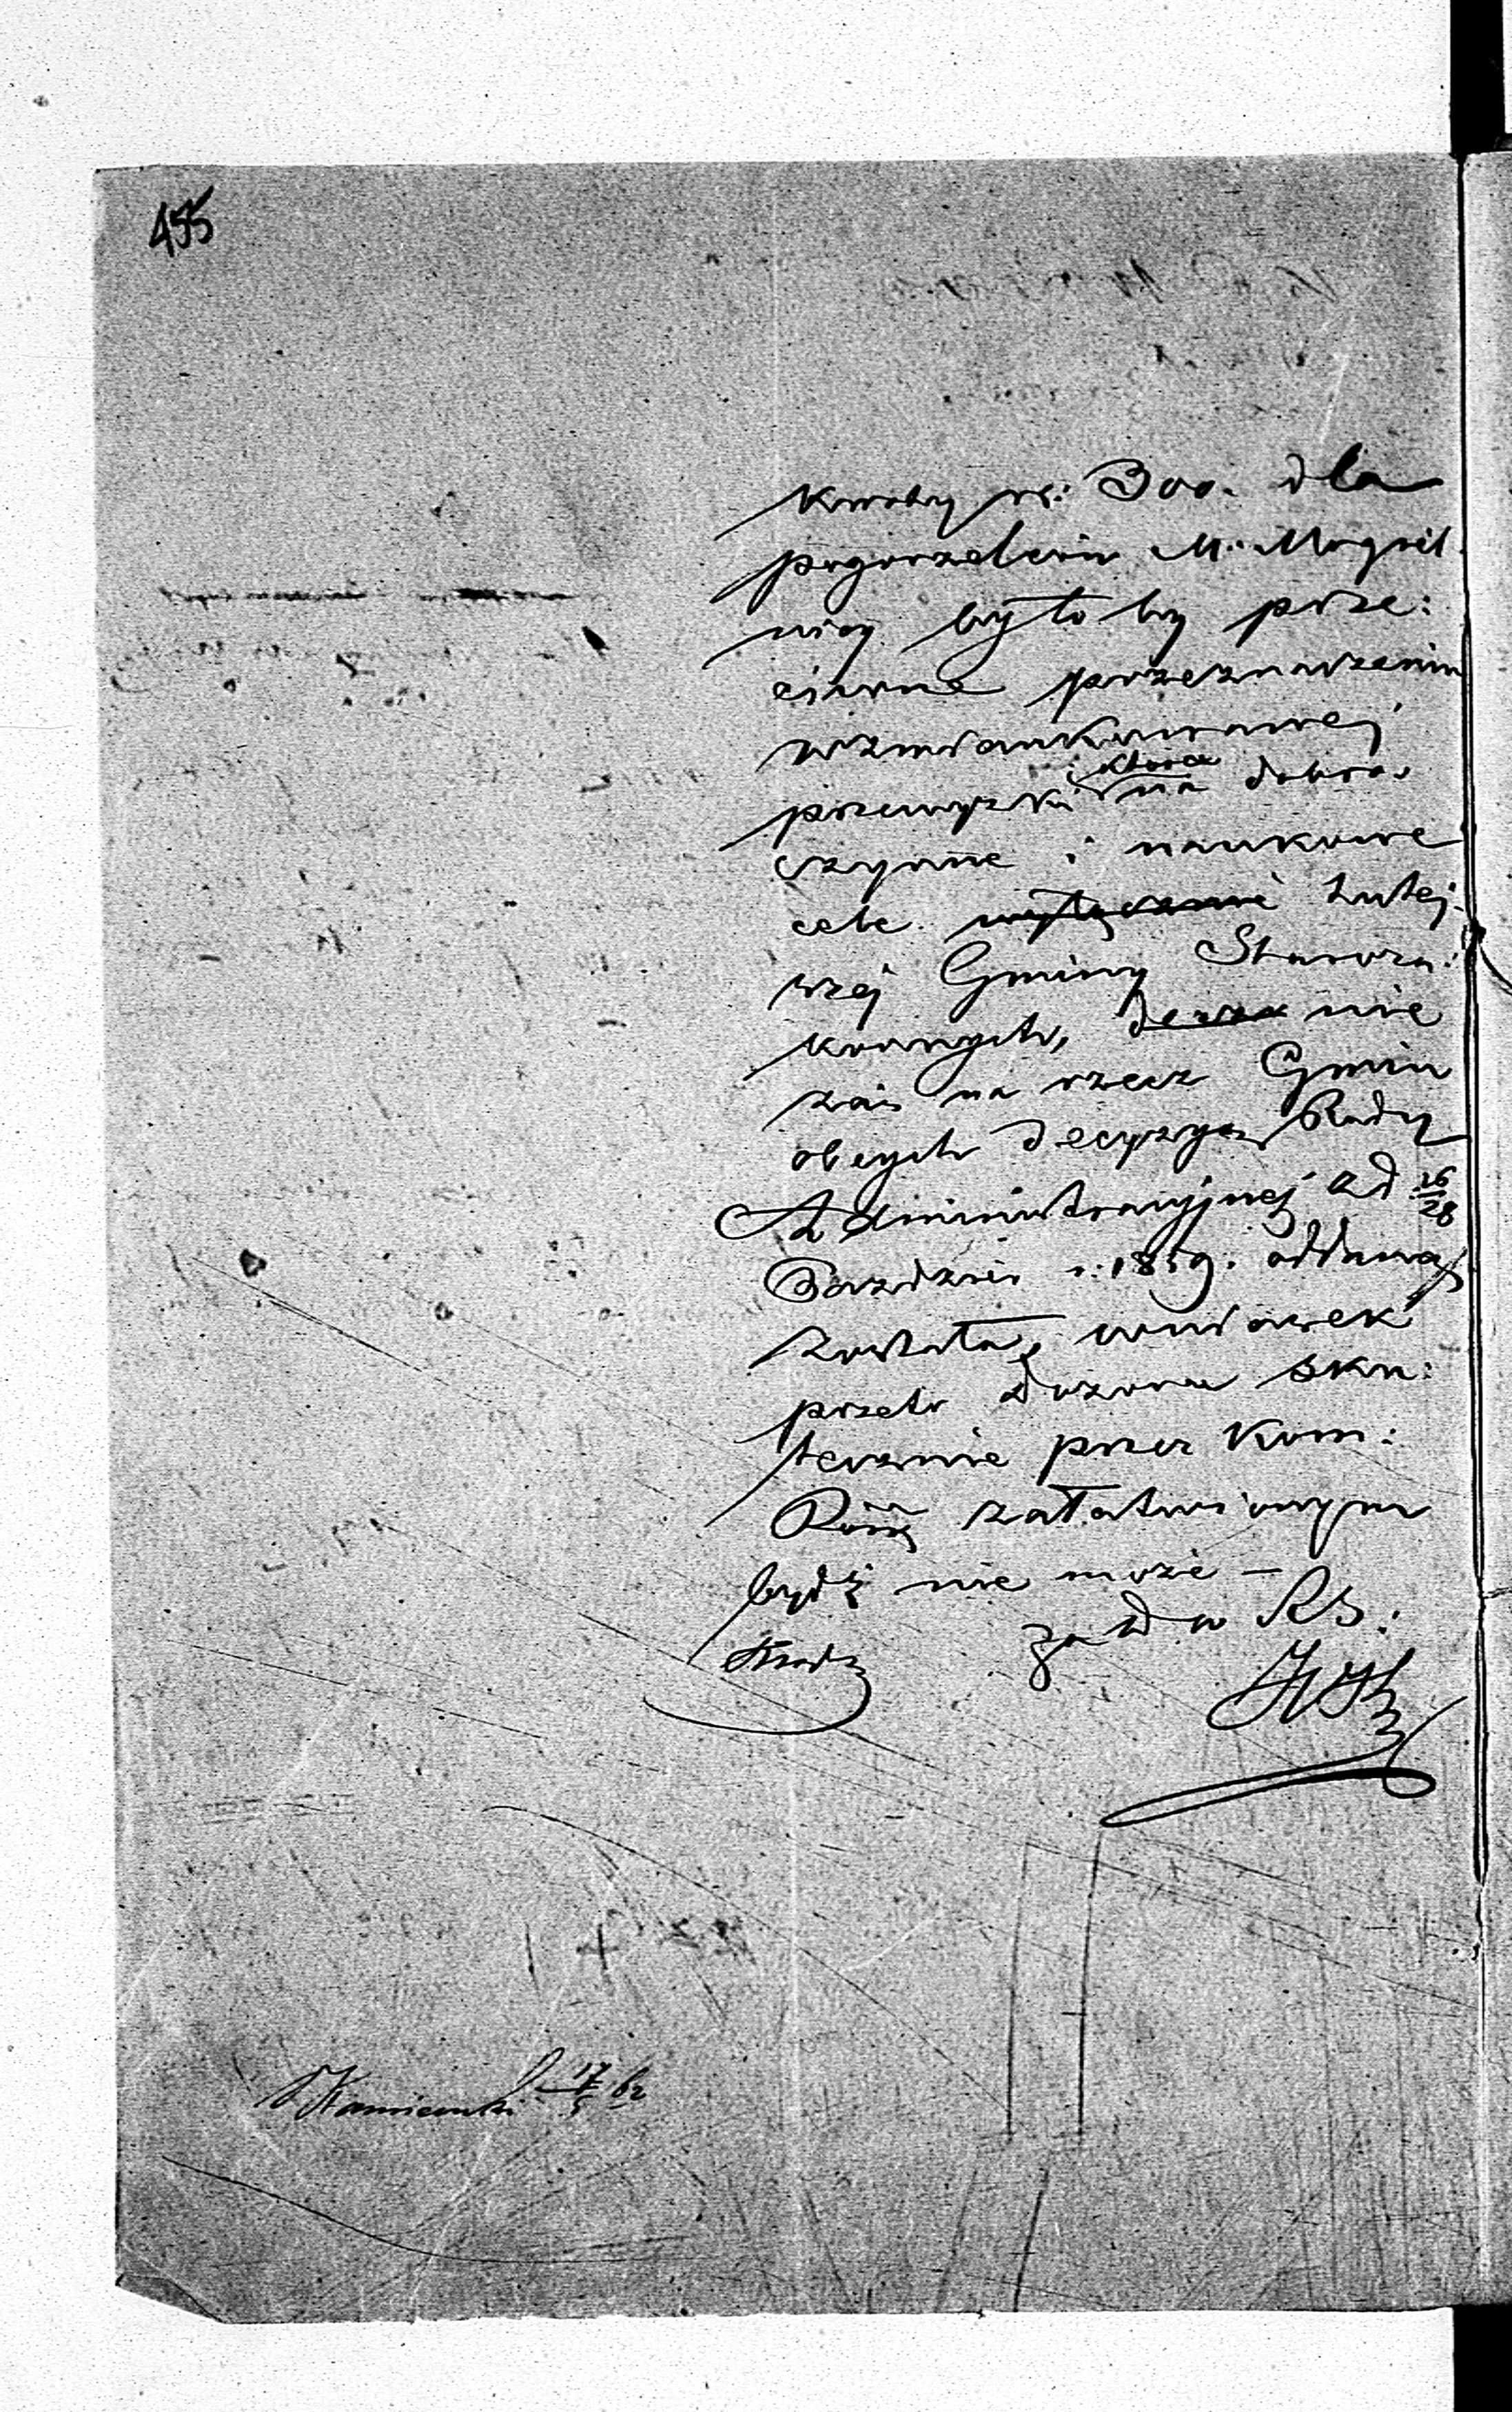 455
kwoty rs: 300. dla
pogorzelców M. Mogiel
nicy byłoby prze:
ciwne przeznaczeniu
wzmiankowanej
przewyżki która na dobro
czynne i naukowe
cele wyłącznie tutej:
szej Gminy Staroza:
konnych, nie
zaś na rzecz Gmin
obcych decyzyą Rady
Administracyjnej z d. 16/28
Paździer. r. 1859. oddaną
została, wniosek
przeto Dozoru sku:
tecznie przez Kom:
Rśką załatwionym
bydź nie może —
za D w RS.
17/5 62